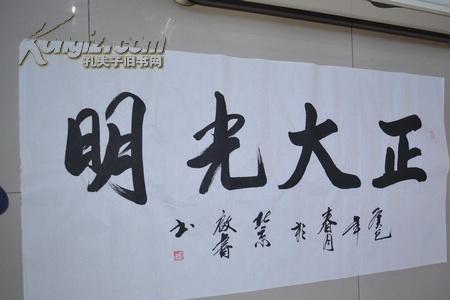 Kongfz.com
孔夫子旧书网
正大光明
年春月於北京
书